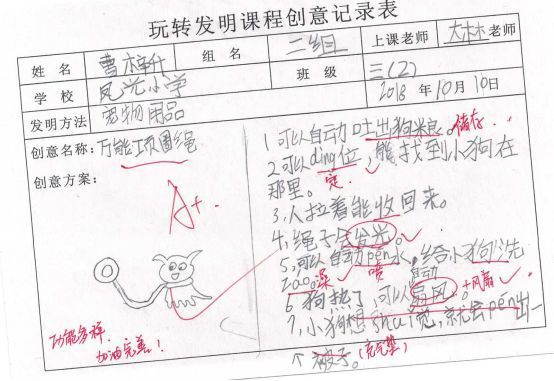 玩转发明课程创意记录表
姓 名 曹梓轩 组 名 二组 上课老师 大林老师
学 校 凤光小学 班 级 三(2) 2018年10月10日
发明方法 宠物用品
创意名称:万能项圈绳
创意方案:
A+
功能多样,
加油完善!
1.可以自动吐出狗粮。储存
2.可以ding位,能找到小狗在
定
那里。
3.人拉着能收回来。
4.绳子会发光。
5,可以自动pēn水,给小狗洗
喷
zao。澡
自动
6 狗热了,可以扇风。+风扇
7,小狗想shui觉,就会pēn出一
个被子。(充气垫)